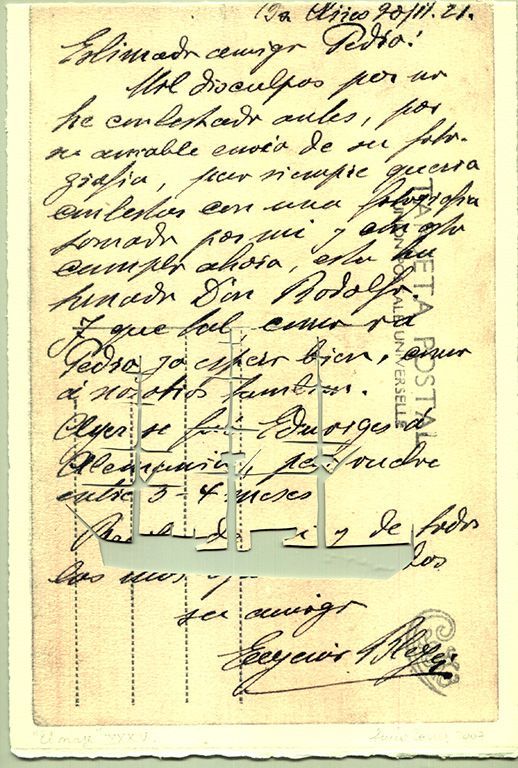 Bs Aires 20/II. 21.
Estimado amigo Pedro!
Mil disculpos por no
he contestado antes, por
su amable envio de su foto-
grafia, pero siempre queria
contestar con una fotografia
tomada por mi y con esto
cumplo ahora, esta ha
tomada Don Rodolfo.
Y que tal como va
Pedro, yo espero bien, como
á nosotros tambien.
Ayer se fué Eduviges á
Alemania, vuelve
entre 3-4 meses
y de todos
los
su amigo
Eugenio
TARJETA POSTAL
UNION POSTALE UNIVERSELLE
"El mar" XXXV.
2003